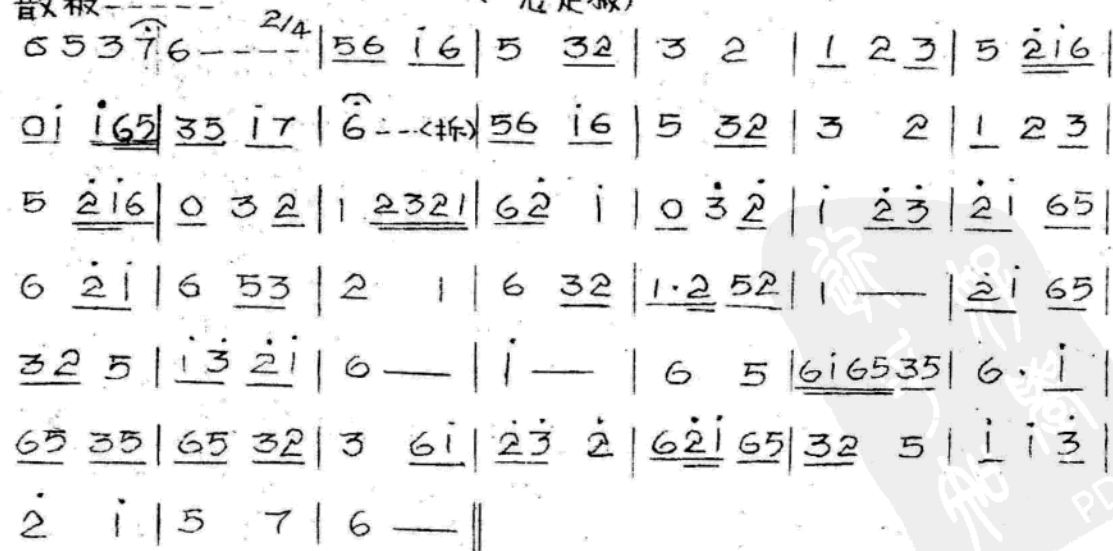 散板-----
6 5 3 7̇ 6---- 2/4 | 56 i̇6 | 5 32 | 3 2 | 1 2 3 | 5 2̇i̇6 |
0i̇ i̇65 | 35 i̇7 | 6̇---<拆> 56 i̇6 | 5 32 | 3 2 | 1 2 3 |
5 2̇i̇6 | 0 3 2 | 1 2321 | 62̇ i̇ | 0 3̇ 2̇ | i̇ 2̇3̇ | 2̇i̇ 65 |
6 2̇i̇ | 6 53 | 2 1 | 6 32 | 1·2 52 | 1 — | 2̇i̇ 65 |
32 5 | i̇3̇ 2̇i̇ | 6 — | i̇ — | 6 5 | 6i̇6535 | 6· i̇ |
65 35 | 65 32 | 3 6i̇ | 2̇3̇ 2̇ | 62̇i̇ 65 | 32 5 | i̇ i̇ 3̇ |
2̇ i̇ | 5 7 | 6 — ‖
PD